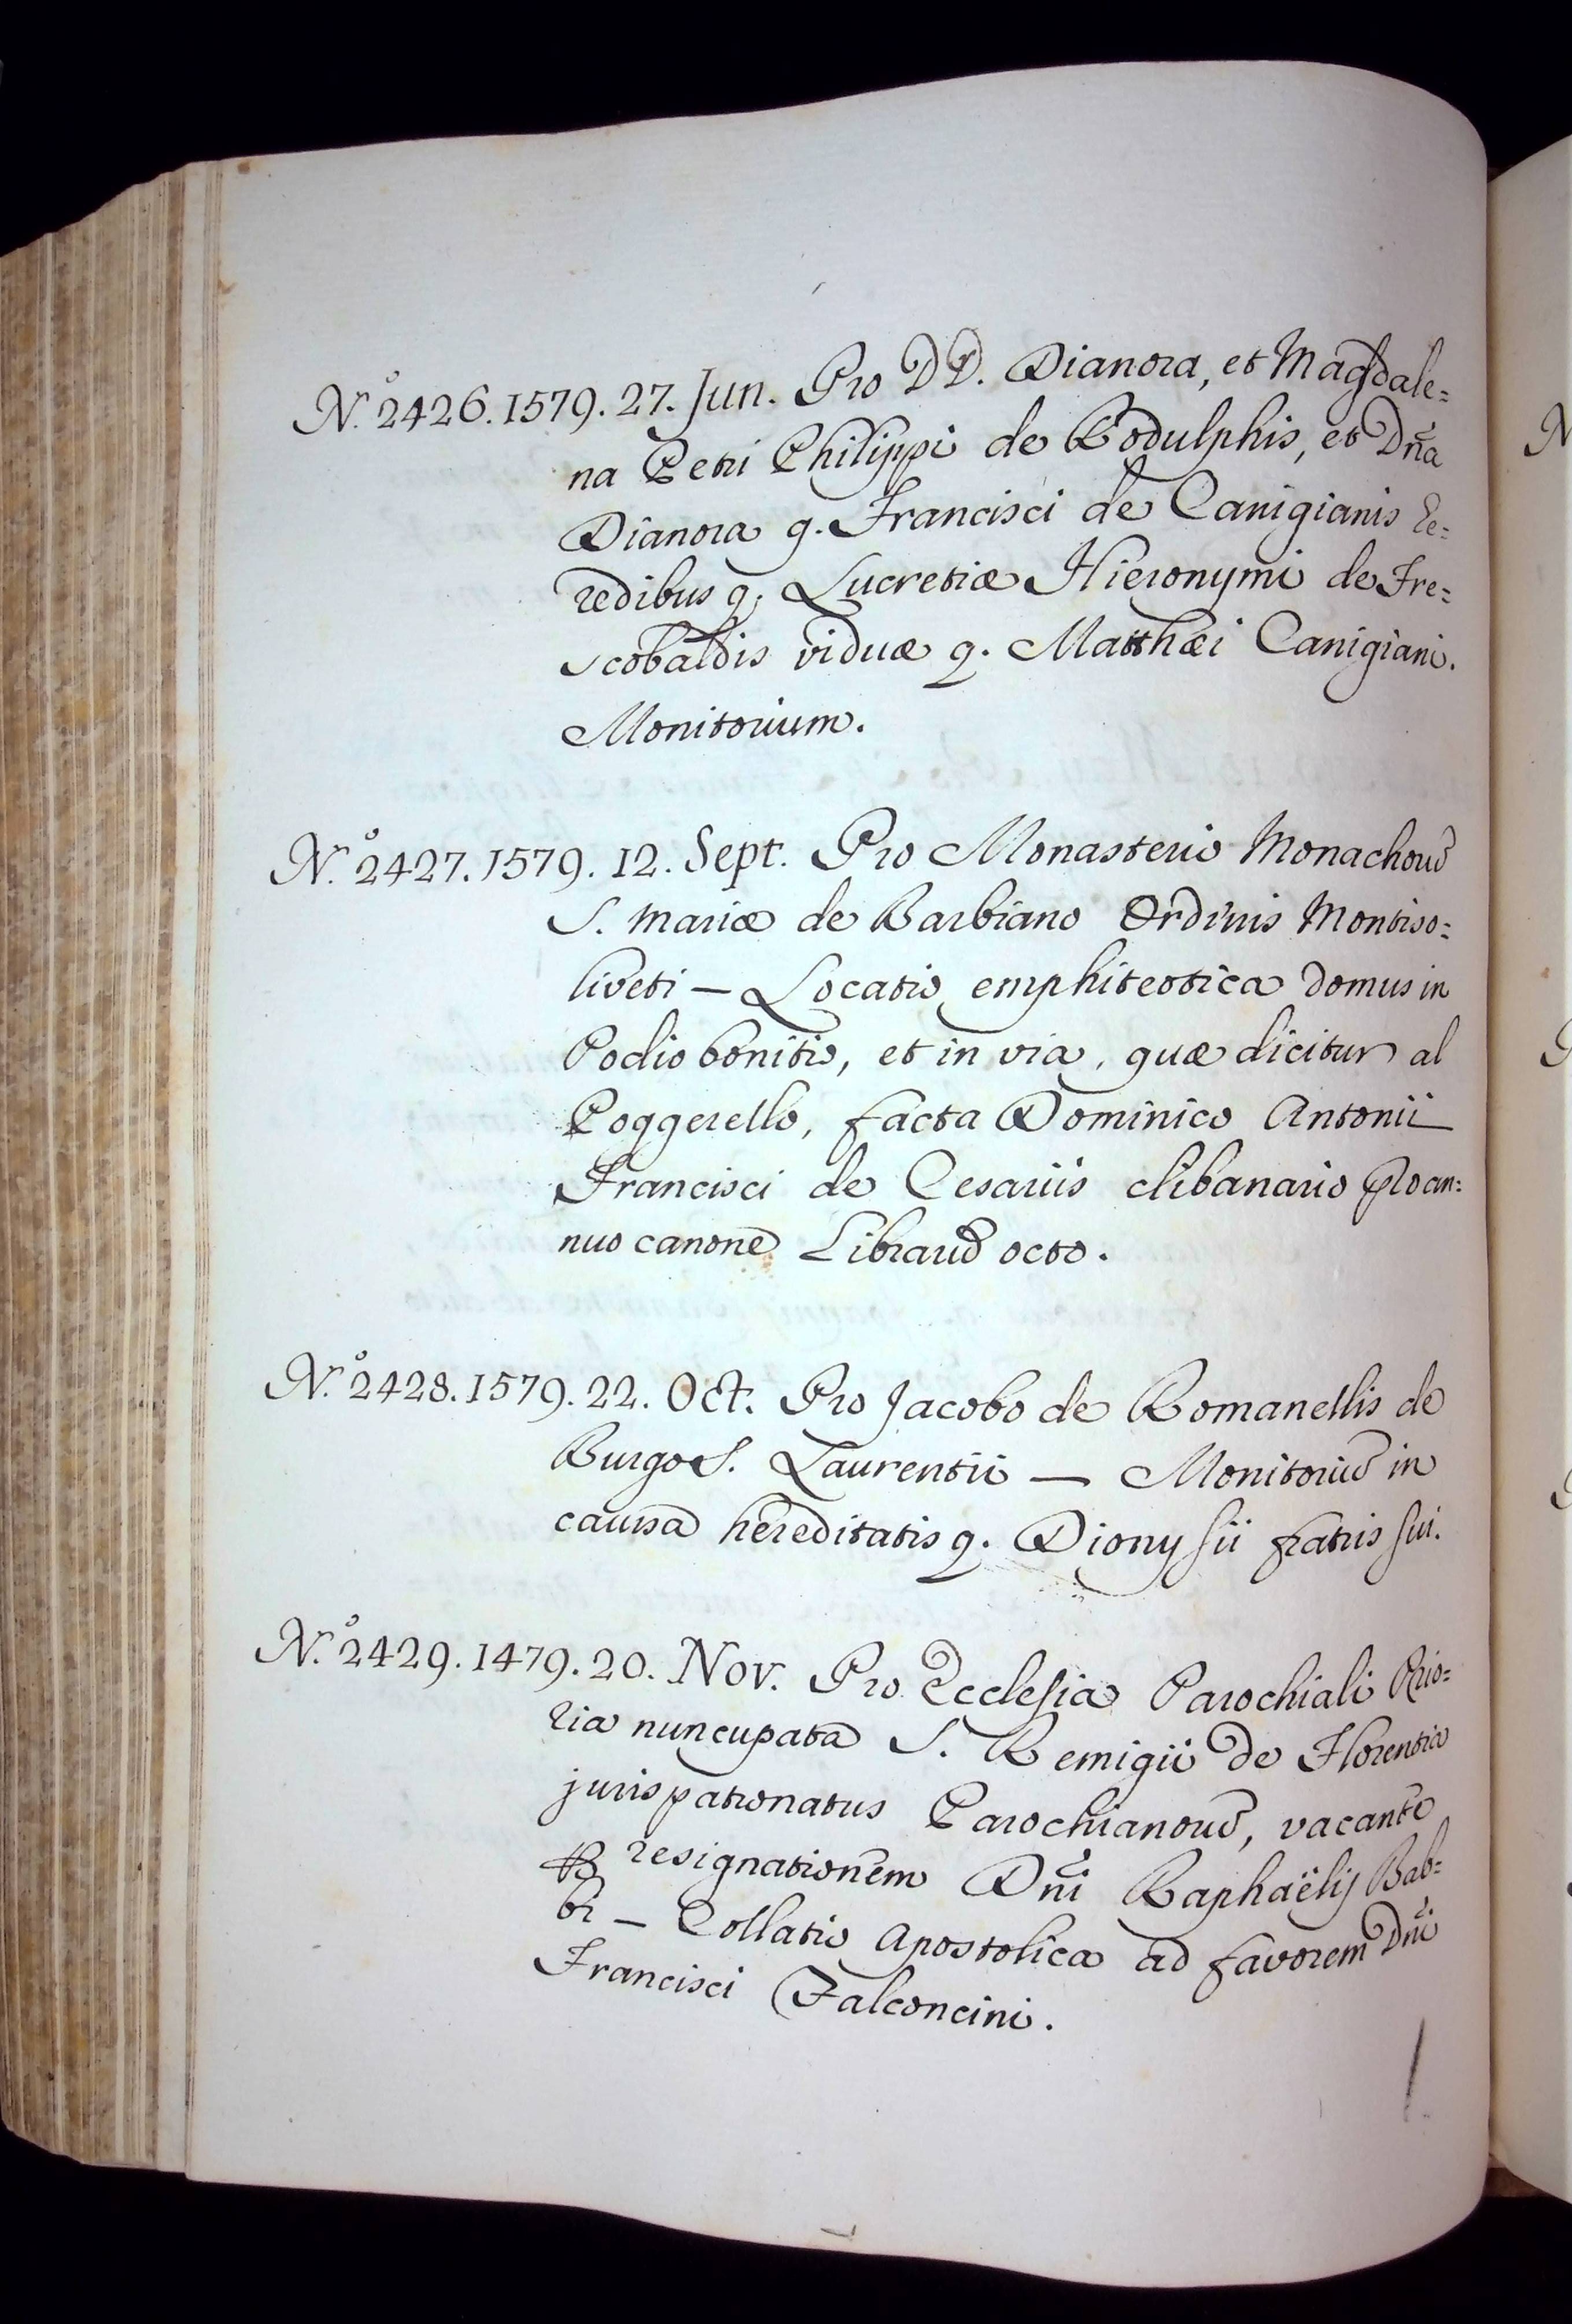 N.º 2426. 1579. 27. Jun. Pro DD. Dianora, et Magdale=
na Petri Philippi de Rodulphis, et Dña
Dianora q. Francisci de Canigianis He=
redibus q. Lucretiæ Hieronymi de Fre=
scobaldis viduæ q. Matthæi Canigiani.
Monitorium.
N.º 2427. 1579. 12. Sept. Pro Monasterio Monachorũ
S. Mariæ de Barbiano Ordinis Montiso=
liveti — Locatio emphiteotica domus in
Podio bonitio, et in via, quæ dicitur al
Poggerello, facta Dominico Antonii
Francisci de Cesariis clibanario pro an=
nuo canone Librarũ octo.
N.º 2428. 1579. 22. Oct. Pro Jacobo de Romanellis de
Burgo S. Laurentii — Monitoriũ in
causa hereditatis q. Dionysii fratris sui.
N.º 2429. 1479. 20. Nov. Pro Ecclesia Parochiali Prio=
ria nuncupata S. Remigii de Florentia
juris patronatus Parochianorũ, vacante
resignationem Dñi Raphaëlis Bab=
bi — Collatio Apostolica ad favorem Dñi
Francisci Falconcini.